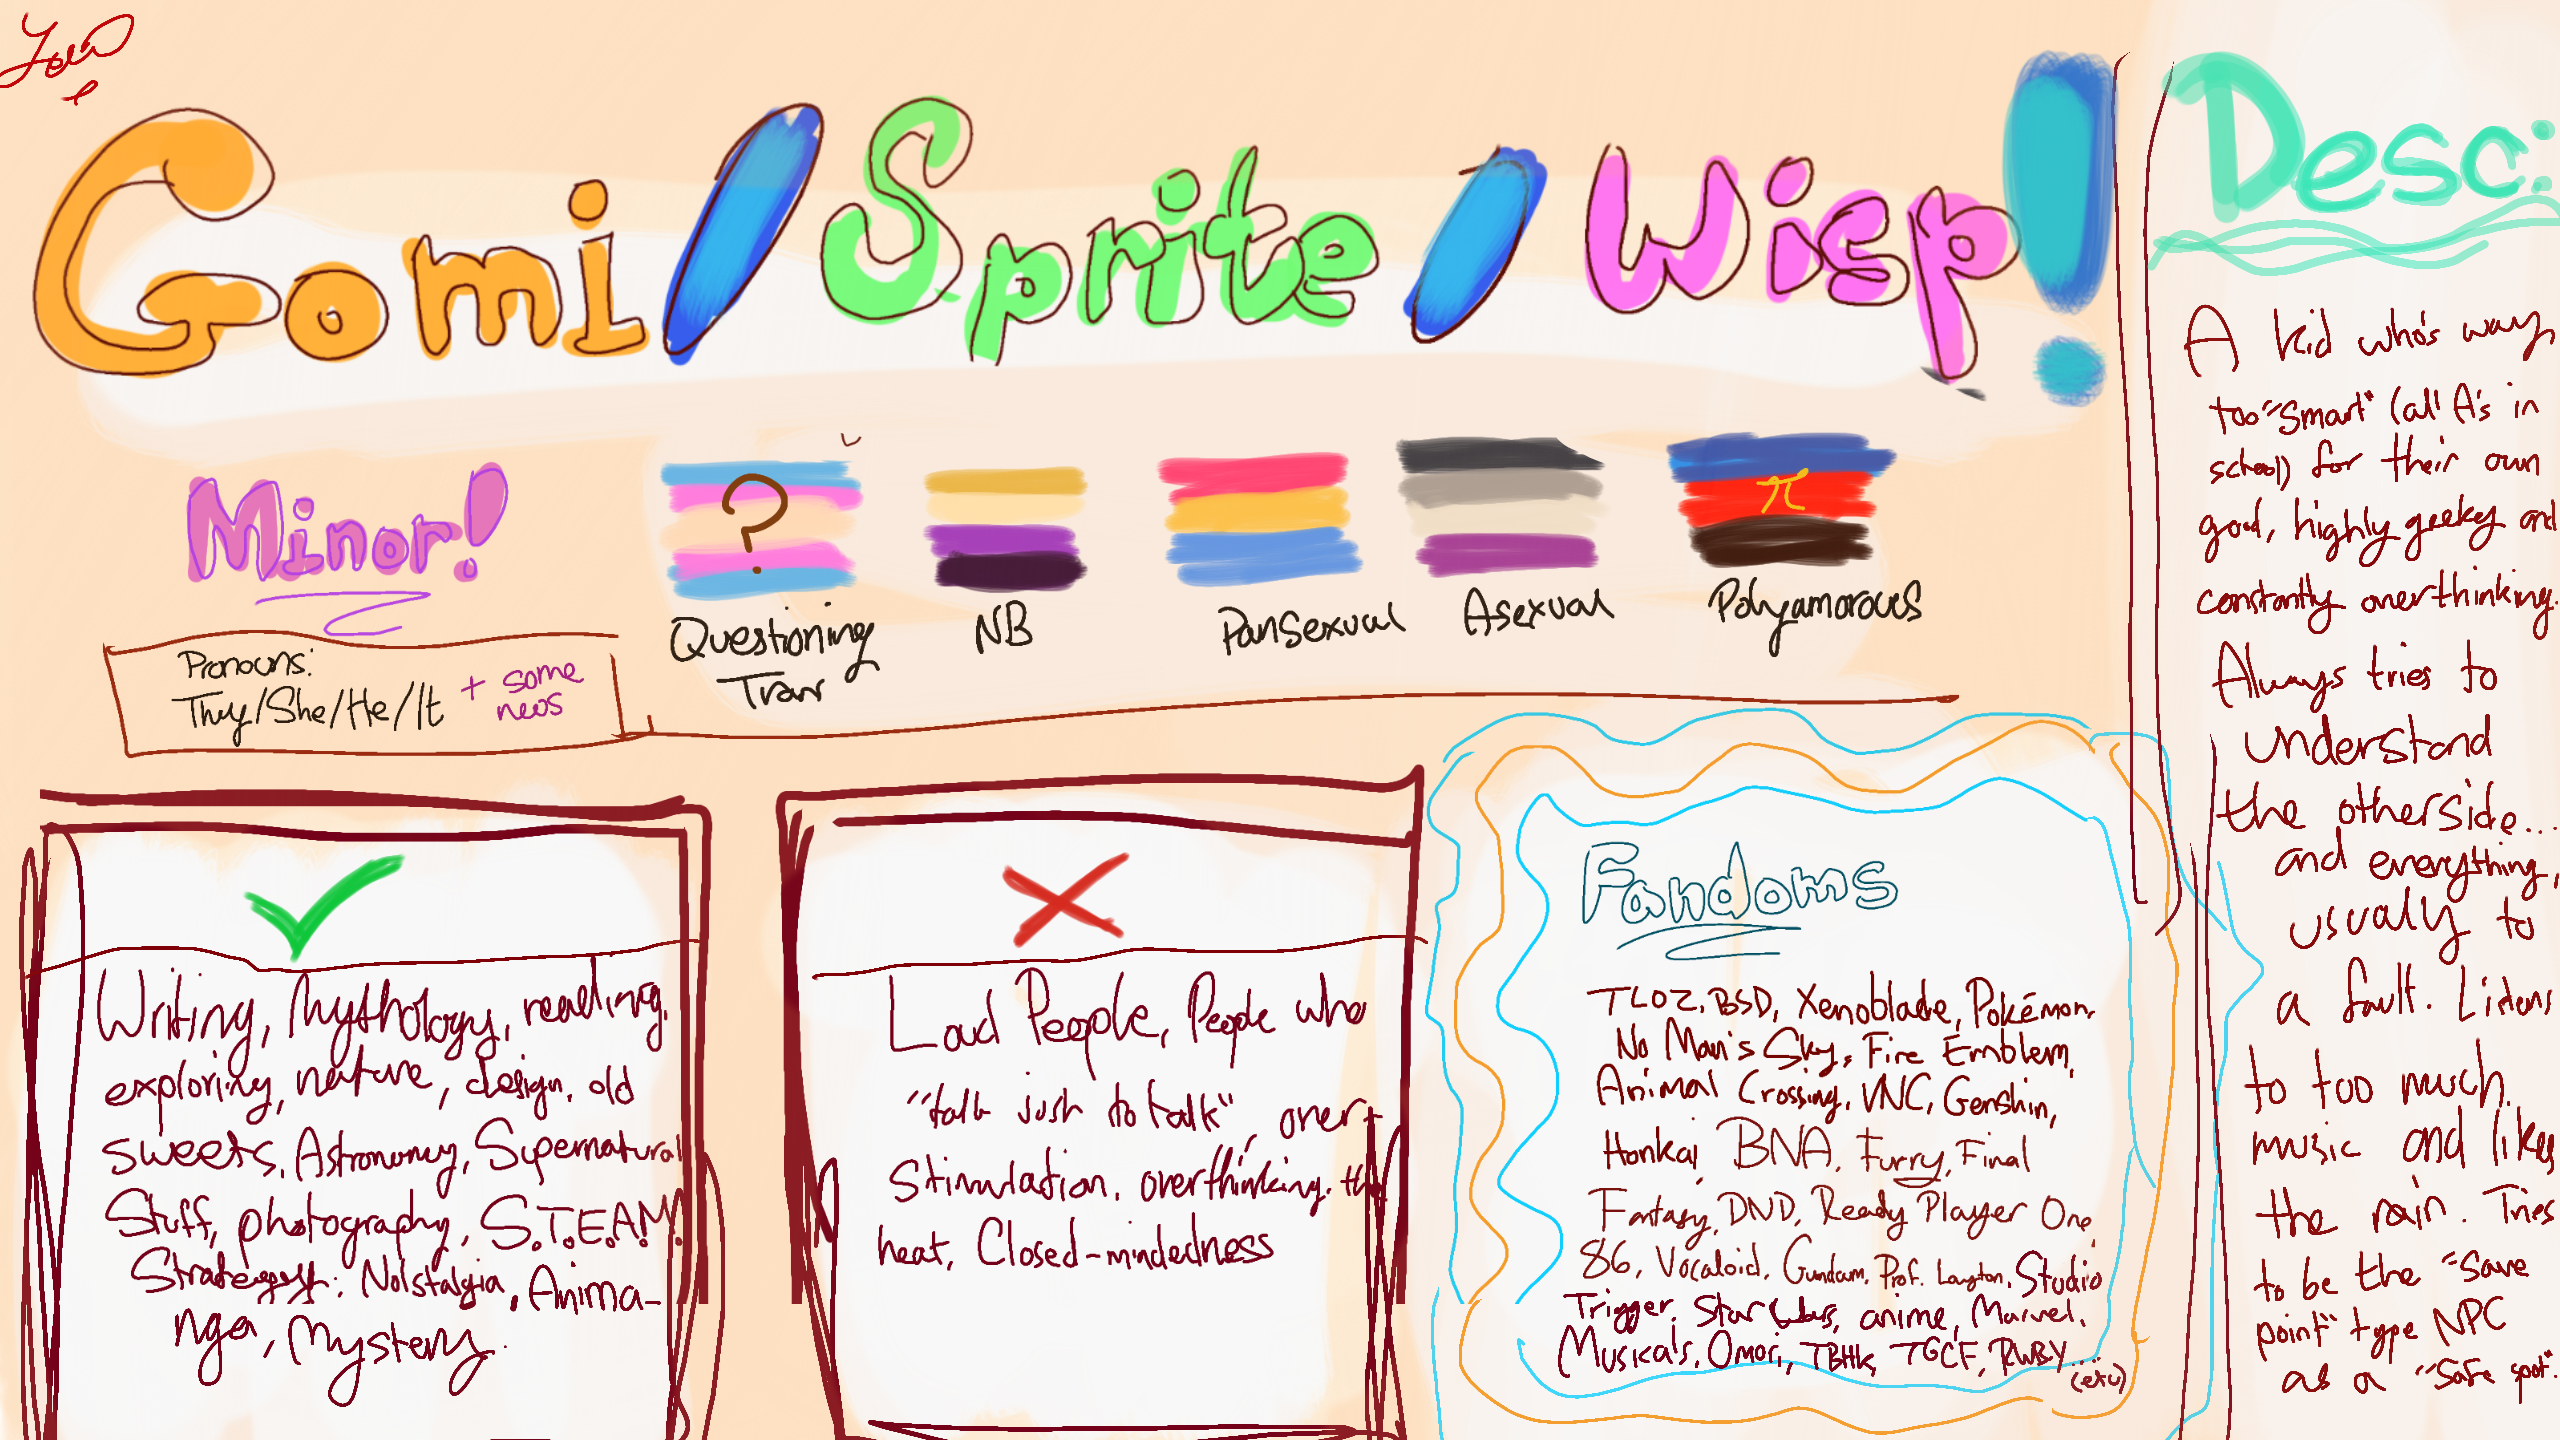 Gomi/Sprite/Wisp!
Minor!
Pronouns:
They/She/He/It
+ some
neos
?
Questioning
Tran
NB
Pansexual
Asexual
π
Polyamorous
Writing, Mythology, reading,
exploring, nature, design, old
sweets, Astronomy, Supernatural
Stuff, photography, S.T.E.A.M.
Nolstalgia, Anima-
nga, Mystery.
Loud People, People who
"talk just to talk", over-
Stimulation, overthinking, the
heat, Closed-mindedness
Fandoms
TLOZ, BSD, Xenoblade, Pokémon,
No Man's Sky, Fire Emblem,
Animal Crossing, VNC, Genshin,
Honkai BNA, Furry, Final
Fantasy, DND, Ready Player One
86, Vocaloid, Gundam, Prof. Layton, Studio
Trigger, Star Wars, anime, Marvel,
Musicals, Omori, TBHK, TGCF, RWBY...
(etc)
Desc:
A kid who's way
too "smart" (all A's in
school) for their own
good, highly geeky and
constantly overthinking.
Always tries to
understand
the otherside...
and everything,
usualy to
a fault. Listens
to too much
music and likes
the rain. Tries
to be the "save
point" type NPC
as a "safe spot".